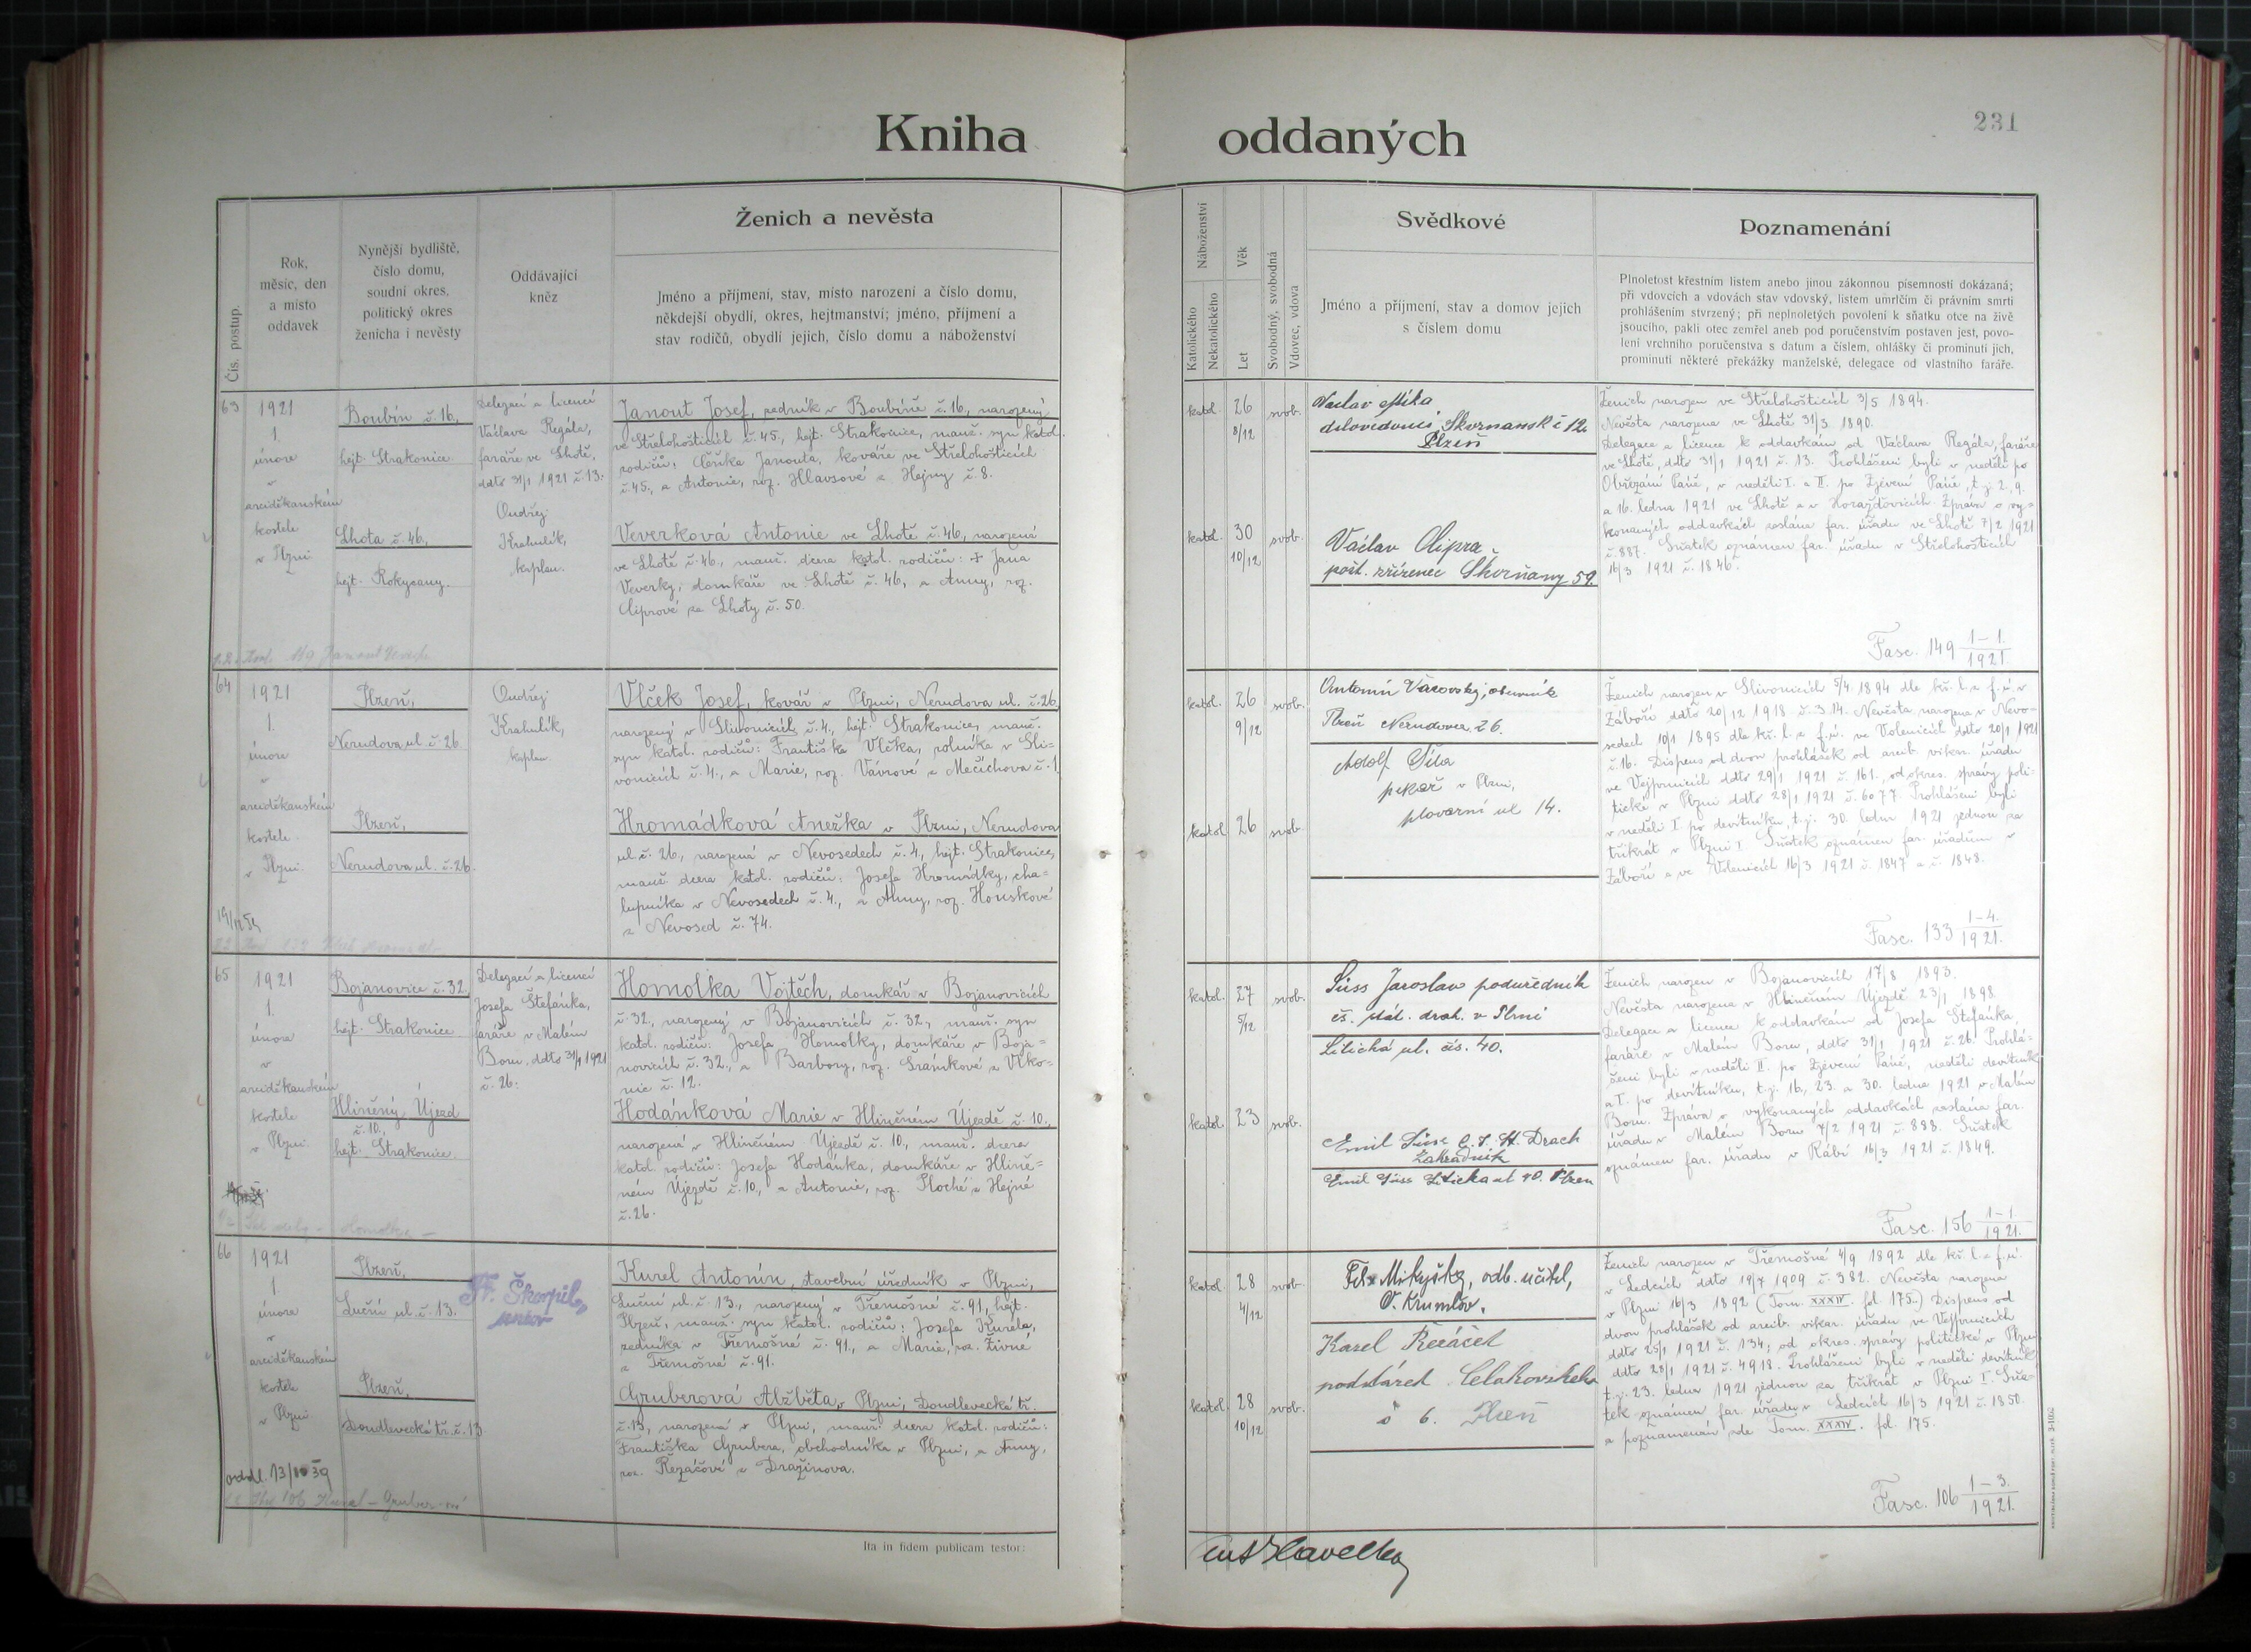 Kniha oddaných
231
Čís. postup.
Rok,
měsíc, den
a místo
oddavek
Nynější bydliště,
číslo domu,
soudní okres,
politický okres
ženicha i nevěsty
Oddávající
kněz
Ženich a nevěsta
Jméno a příjmení, stav, místo narození a číslo domu,
někdejší obydlí, okres, hejtmanství; jméno, příjmení a
stav rodičů, obydlí jejich, číslo domu a náboženství
Náboženství
Katolického
Nekatolického
Věk
Let
Svobodný, svobodná
Vdovec, vdova
Svědkové
Jméno a příjmení, stav a domov jejich
s číslem domu
Poznamenání
Plnoletost křestním listem anebo jinou zákonnou písemností dokázaná;
při vdovcích a vdovách stav vdovský, listem úmrlčím či právním smrti
prohlášením stvrzený; při neplnoletých povolení k sňatku otce na živě
jsoucího, pakli otec zemřel aneb pod poručenstvím postaven jest, povo-
lení vrchního poručenstva s datum a číslem, ohlášky či prominutí jich,
prominutí některé překážky manželské, delegace od vlastního faráře.
63
1921
1.
února
v
arciděkanském
kostele
v Plzni
Boubín č. 16,
hejt. Strakonice
Lhota č. 46,
hejt. Rokycany.
Delegací a licencí
Václava Regála,
faráře ve Lhotě,
ddto 31/1 1921 č. 13.
Ondřej
Krahulík,
kaplan.
Janout Josef, rolník v Boubíně č. 16, narozený
ve Střelohošticích č. 45, hejt. Strakonice, manž. syn katol.
rodičů: Čeňka Janouta, kováře ve Střelohošticích
č. 45, a Antonie, roz. Hlavsové z Hejny č. 8.
Veverková Antonie ve Lhotě č. 46, narozená
ve Lhotě č. 46, manž. dcera katol. rodičů: + Jana
Veverky, domkáře ve Lhotě č. 46, a Anny, roz.
Ciprové ze Lhoty č. 50.
katol. 26 8/12 svob.
katol. 30 10/12 svob.
Václav Míka
dílovedoucí Skvrnansk č 12
Plzeň
Václav Cipra
pošt. zřízenec Skvrňany 59.
Ženich narozen ve Střelohošticích 3/5 1894.
Nevěsta narozena ve Lhotě 31/3 1890.
Delegace a licence k oddavkám od Václava Regála, faráře
ve Lhotě, ddto 31/1 1921 č. 13. Prohlášeni byli v neděli po
Obřezání Páně, v neděli I. a II. po Zjevení Páně, t. j. 2., 9.
a 16. ledna 1921 ve Lhotě a v Horažďovicích. Zpráva o vy=
konaných oddavkách zaslána far. úřadu ve Lhotě 7/2 1921
č. 887. Sňatek oznámen far. úřadu v Střelohošticích
16/3 1921 č. 1846.
Fasc. 149 1-1./1921
64
1921
1.
února
v
arciděkanském
kostele
v Plzni.
Plzeň,
Nerudova ul. č. 26
Plzeň,
Nerudova ul. č. 26.
Ondřej
Krahulík,
kaplan
Vlček Josef, kovář v Plzni, Nerudova ul. č. 26,
narozený v Slivonicích č. 4, hejt. Strakonice, manž.
syn katol. rodičů: Františka Vlčka, rolníka v Sli-
vonicích č. 4., a Marie, roz. Vávrové z Mečichova č. 1
Hromádková Anežka v Plzni, Nerudova
ul. č. 26, narozená v Nevosedech č. 4, hejt. Strakonice,
manž. dcera katol. rodičů: Josefa Hromádky, cha=
lupníka v Nevosedech č. 4., a Anny, roz. Houskové
z Nevosed č. 74.
katol. 26 9/12 svob.
katol. 26 svob
Antonín Vacovský, obuvník
Plzeň Nerudova č 6.
Adolf Šíla
pekař v Plzni,
plovární ul 14.
Ženich narozen v Slivonicích 5/4 1894 dle kř. l. z f. ú. v
Záboří ddto 20/12 1918 č. 314. Nevěsta narozena v Nevo-
sedech 10/1 1895 dle kř. l. z f. ú. ve Volenicích ddto 20/1 1921
č. 16. Dispens od dvou prohlášek od arcib. vikar. úřadu
ve Vejprnicích ddto 29/1 1921 č. 161., od okres. správy poli-
tické v Plzni ddto 28/1 1921 č. 6077. Prohlášeni byli
v neděli I. po devítníku, t. j. 30. ledna 1921 jednou za
třikrát v Plzni I. Sňatek oznámen far. úřadům v
Záboří a ve Volenicích 16/3 1921 č. 1847 a č. 1848.
Fasc. 133 1-4./1921.
65
1921
1.
února
v
arciděkanském
kostele
v Plzni.
Bojanovice č. 32.
hejt. Strakonice
Hliněný Újezd
č. 10,
hejt. Strakonice.
Delegací a licencí
Josefa Štefánka,
faráře v Malém
Boru, ddto 31/1 1921
č. 26.
Homolka Vojtěch, domkář v Bojanovicích
č. 32, narozený v Bojanovicích č. 32, manž. syn
katol. rodičů: Josefa Homolky, domkáře v Boja=
novicích č. 32., a Barbory, roz. Šrámkové z Vlko=
nic č. 12.
Hodánková Marie v Hliněném Újezdě č. 10.,
narozená v Hliněném Újezdě č. 10, manž. dcera
katol. rodičů: Josefa Hodánka, domkáře v Hlině=
ném Újezdě č. 10., a Antonie, roz. Ploché z Hejné
č. 26.
katol. 27 5/12 svob.
katol. 23 svob.
Süss Jaroslav podúředník
čs. stát. drah. v Plzni
Litická ul. čís. 40.
Emil Süss
Zahradník
Emil Süss Liticka ul 40. Plzen
Ženich narozen v Bojanovicích 17/8 1893.
Nevěsta narozena v Hliněném Újezdě 23/1 1898.
Delegace a licence k oddavkám od Josefa Štefánka,
faráře v Malém Boru, ddto 31/1 1921 č. 26. Prohlá-
šeni byli v neděli II. po Zjevení Páně, neděli devítník
a I. po devítníku, t. j. 16., 23. a 30. ledna 1921 v Malém
Boru. Zpráva o vykonaných oddavkách zaslána far.
úřadu v Malém Boru 7/2 1921 č. 888. Sňatek
oznámen far. úřadu v Rábí 16/3 1921 č. 1849.
Fasc. 156 1-1/1921.
66
1921
1
února
v
arciděkanském
kostele
v Plzni
odděl. 13/10 39
Plzeň,
Luční ul. č. 13.
Plzeň,
Doudlevecká tř. č. 13
Fr. Škarpil,
Kurel Antonín, stavební úředník v Plzni,
Luční ul. č. 13., narozený v Třemošné č. 91, hejt.
Plzeň, manž. syn katol. rodičů: Josefa Kurela,
zedníka v Třemošné č. 91., a Marie, roz. Živné
z Třemošné č. 91.
Gruberová Alžběta v Plzni, Doudlevecká tř.
č. 13, narozená v Plzni, manž. dcera katol. rodičů:
Františka Grubera, obchodníka v Plzni, a Anny,
roz. Rezáčové z Dražinova.
katol. 28 4/12 svob.
katol. 28 10/12 svob.
Mikyška, odb. učitel,
Č. Krumlov.
Karel Řezáček
Čelakovského
č 6. Plzeň
Ženich narozen v Třemošné 4/9 1892 dle kř. l. z f. ú.
v Ledcích ddto 19/7 1909 č. 382. Nevěsta narozena
v Plzni 16/3 1892 (Tom. XXXIV. fol. 175.) Dispens od
dvou prohlášek od arcib. vikar. úřadu ve Vejprnicích
ddto 25/1 1921 č. 134; od okres. správy politické v Plzni
ddto 28/1 1921 č. 4918. Prohlášeni byli v neděli devítník
t. j. 23. ledna 1921 jednou za třikrát v Plzni I. Sňa-
tek oznámen far. úřadu v Ledcích 16/3 1921 č. 1850.
a poznamenán zde Tom. XXXIV. fol. 175.
Fasc. 106 1-3./1921.
Ita in fidem publicam testor: